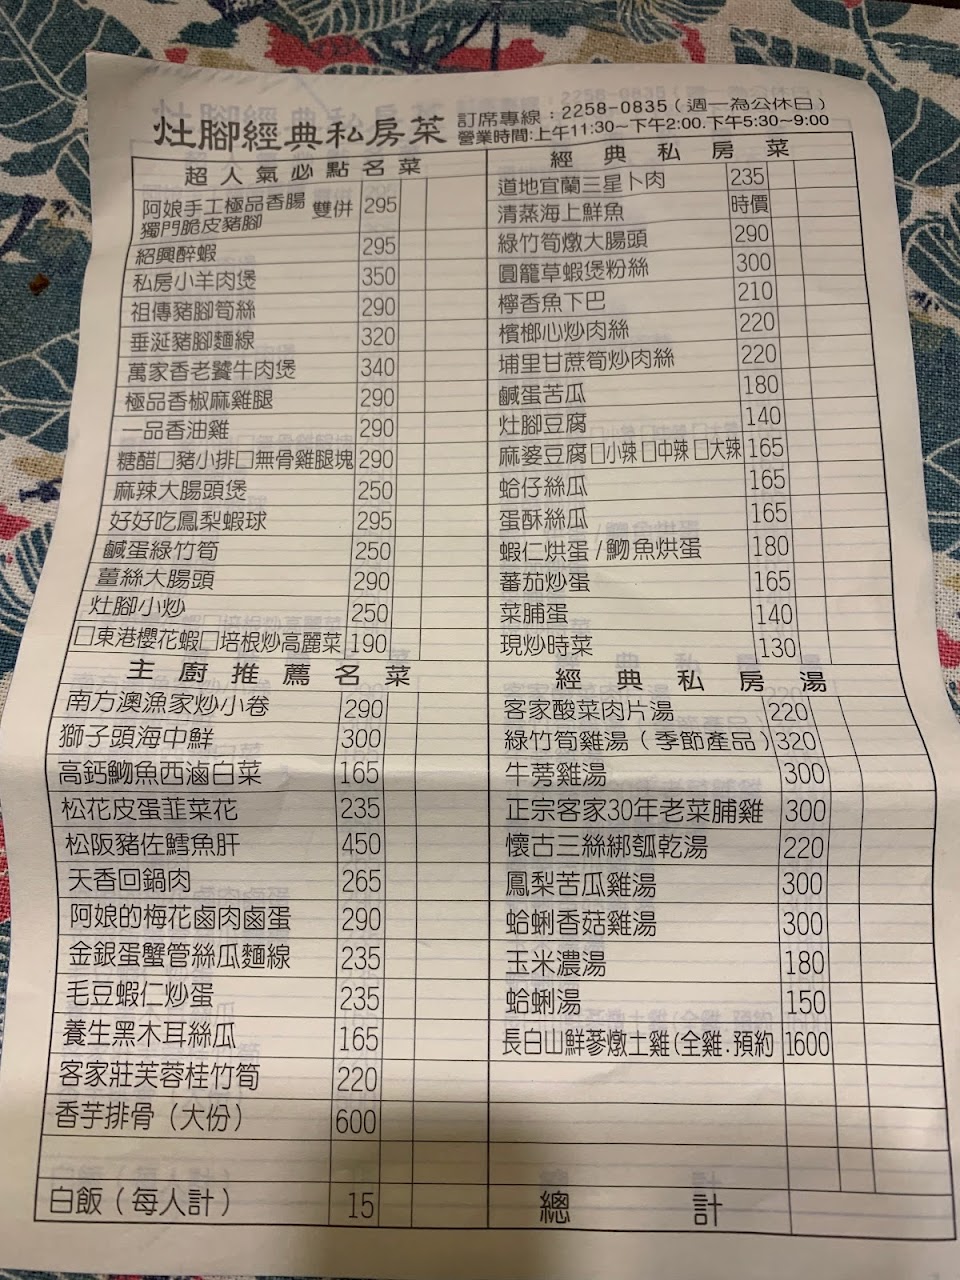 灶腳經典私房菜
訂席專線：2258-0835（週一為公休日）
營業時間:上午11:30~下午2:00.下午5:30~9:00
超人氣必點名菜
阿娘手工極品香腸
獨門脆皮豬腳
雙併 295
紹興醉蝦 295
私房小羊肉煲 350
祖傳豬腳筍絲 290
垂涎豬腳麵線 320
萬家香老饕牛肉煲 340
極品香椒麻雞腿 290
一品香油雞 290
糖醋□豬小排□無骨雞腿塊 290
麻辣大腸頭煲 250
好好吃鳳梨蝦球 295
鹹蛋綠竹筍 250
薑絲大腸頭 290
灶腳小炒 250
□東港櫻花蝦□培根炒高麗菜 190
主廚推薦名菜
南方澳漁家炒小卷 290
獅子頭海中鮮 300
高鈣魩魚西滷白菜 165
松花皮蛋韮菜花 235
松阪豬佐鱈魚肝 450
天香回鍋肉 265
阿娘的梅花鹵肉鹵蛋 290
金銀蛋蟹管絲瓜麵線 235
毛豆蝦仁炒蛋 235
養生黑木耳絲瓜 165
客家莊芙蓉桂竹筍 220
香芋排骨（大份） 600
白飯（每人計） 15
經典私房菜
道地宜蘭三星卜肉 235
清蒸海上鮮魚 時價
綠竹筍燉大腸頭 290
圓籠草蝦煲粉絲 300
檸香魚下巴 210
檳榔心炒肉絲 220
埔里甘蔗筍炒肉絲 220
鹹蛋苦瓜 180
灶腳豆腐 140
麻婆豆腐□小辣□中辣□大辣 165
蛤仔絲瓜 165
蛋酥絲瓜 165
蝦仁烘蛋/魩魚烘蛋 180
蕃茄炒蛋 165
菜脯蛋 140
現炒時菜 130
經典私房湯
客家酸菜肉片湯 220
綠竹筍雞湯（季節產品） 320
牛蒡雞湯 300
正宗客家30年老菜脯雞 300
懷古三絲綁瓠乾湯 220
鳳梨苦瓜雞湯 300
蛤蜊香菇雞湯 300
玉米濃湯 180
蛤蜊湯 150
長白山鮮蔘燉土雞(全雞.預約 1600
總計